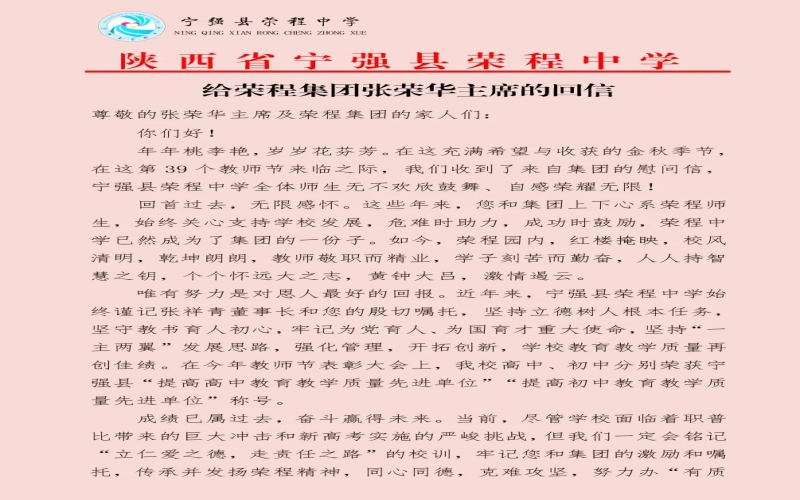 宁强县荣程中学
NING QING XIAN RONG CHENG ZHONG XUE
陕西省宁强县荣程中学
给荣程集团张荣华主席的回信
尊敬的张荣华主席及荣程集团的家人们：
你们好！
年年桃李艳，岁岁花芬芳。在这充满希望与收获的金秋季节，
在这第 39 个教师节来临之际，我们收到了来自集团的慰问信，
宁强县荣程中学全体师生无不欢欣鼓舞、自感荣耀无限！
回首过去，无限感怀。这些年来，您和集团上下心系荣程师
生，始终关心支持学校发展，危难时助力，成功时鼓励，荣程中
学已然成为了集团的一份子。如今，荣程园内，红楼掩映，校风
清明，乾坤朗朗，教师敬职而精业，学子刻苦而勤奋，人人持智
慧之钥，个个怀远大之志，黄钟大吕，激情遏云。
唯有努力是对恩人最好的回报。近年来，宁强县荣程中学始
终谨记张祥青董事长和您的殷切嘱托，坚持立德树人根本任务，
坚守教书育人初心，牢记为党育人、为国育才重大使命，坚持“一
主两翼”发展思路，强化管理，开拓创新，学校教育教学质量再
创佳绩。在今年教师节表彰大会上，我校高中、初中分别荣获宁
强县“提高高中教育教学质量先进单位”“提高初中教育教学质
量先进单位”称号。
成绩已属过去，奋斗赢得未来。当前，尽管学校面临着职普
比带来的巨大冲击和新高考实施的严峻挑战，但我们一定会铭记
“立仁爱之德，走责任之路”的校训，牢记您和集团的激励和嘱
托，传承并发扬荣程精神，同心同德，克难攻坚，努力办“有质